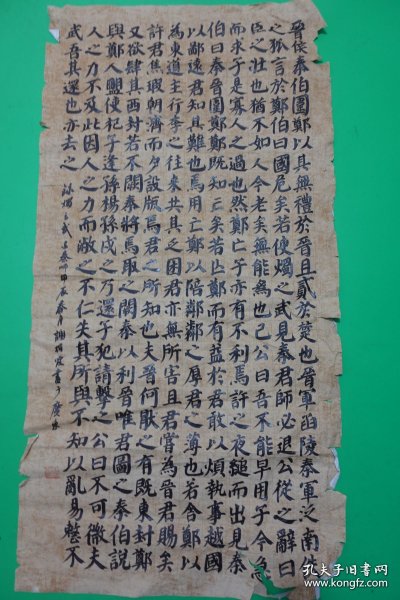 晉侯秦伯圍鄭以其無禮於晉且貳於楚也晉軍函陵秦軍氾南
之狐言於鄭伯曰國危矣若使燭之武見秦君師必退公從之辭曰
臣之壯也猶不如人今老矣無能為也已公曰吾不能早用子今急
而求子是寡人之過也然鄭亡子亦有不利焉許之夜縋而出見秦
伯曰秦晉圍鄭鄭既知亡矣若亡鄭而有益於君敢以煩執事越國
以鄙遠君知其難也焉用亡鄭以陪鄰鄰之厚君之薄也若舍鄭以
為東道主行李之往來共其乏困君亦無所害且君嘗為晉君賜矣
許君焦瑕朝濟而夕設版焉君之所知也夫晉何厭之有既東封鄭
又欲肆其西封若不闕秦將焉取之闕秦以利晉唯君圖之秦伯說
與鄭人盟使杞子逢孫楊孫戍之乃還子犯請擊之公曰不可微夫
人之力不及此因人之力而敝之不仁失其所與不知以亂易整不
武吾其還也亦去之
孔夫子旧书网
www.kongfz.com